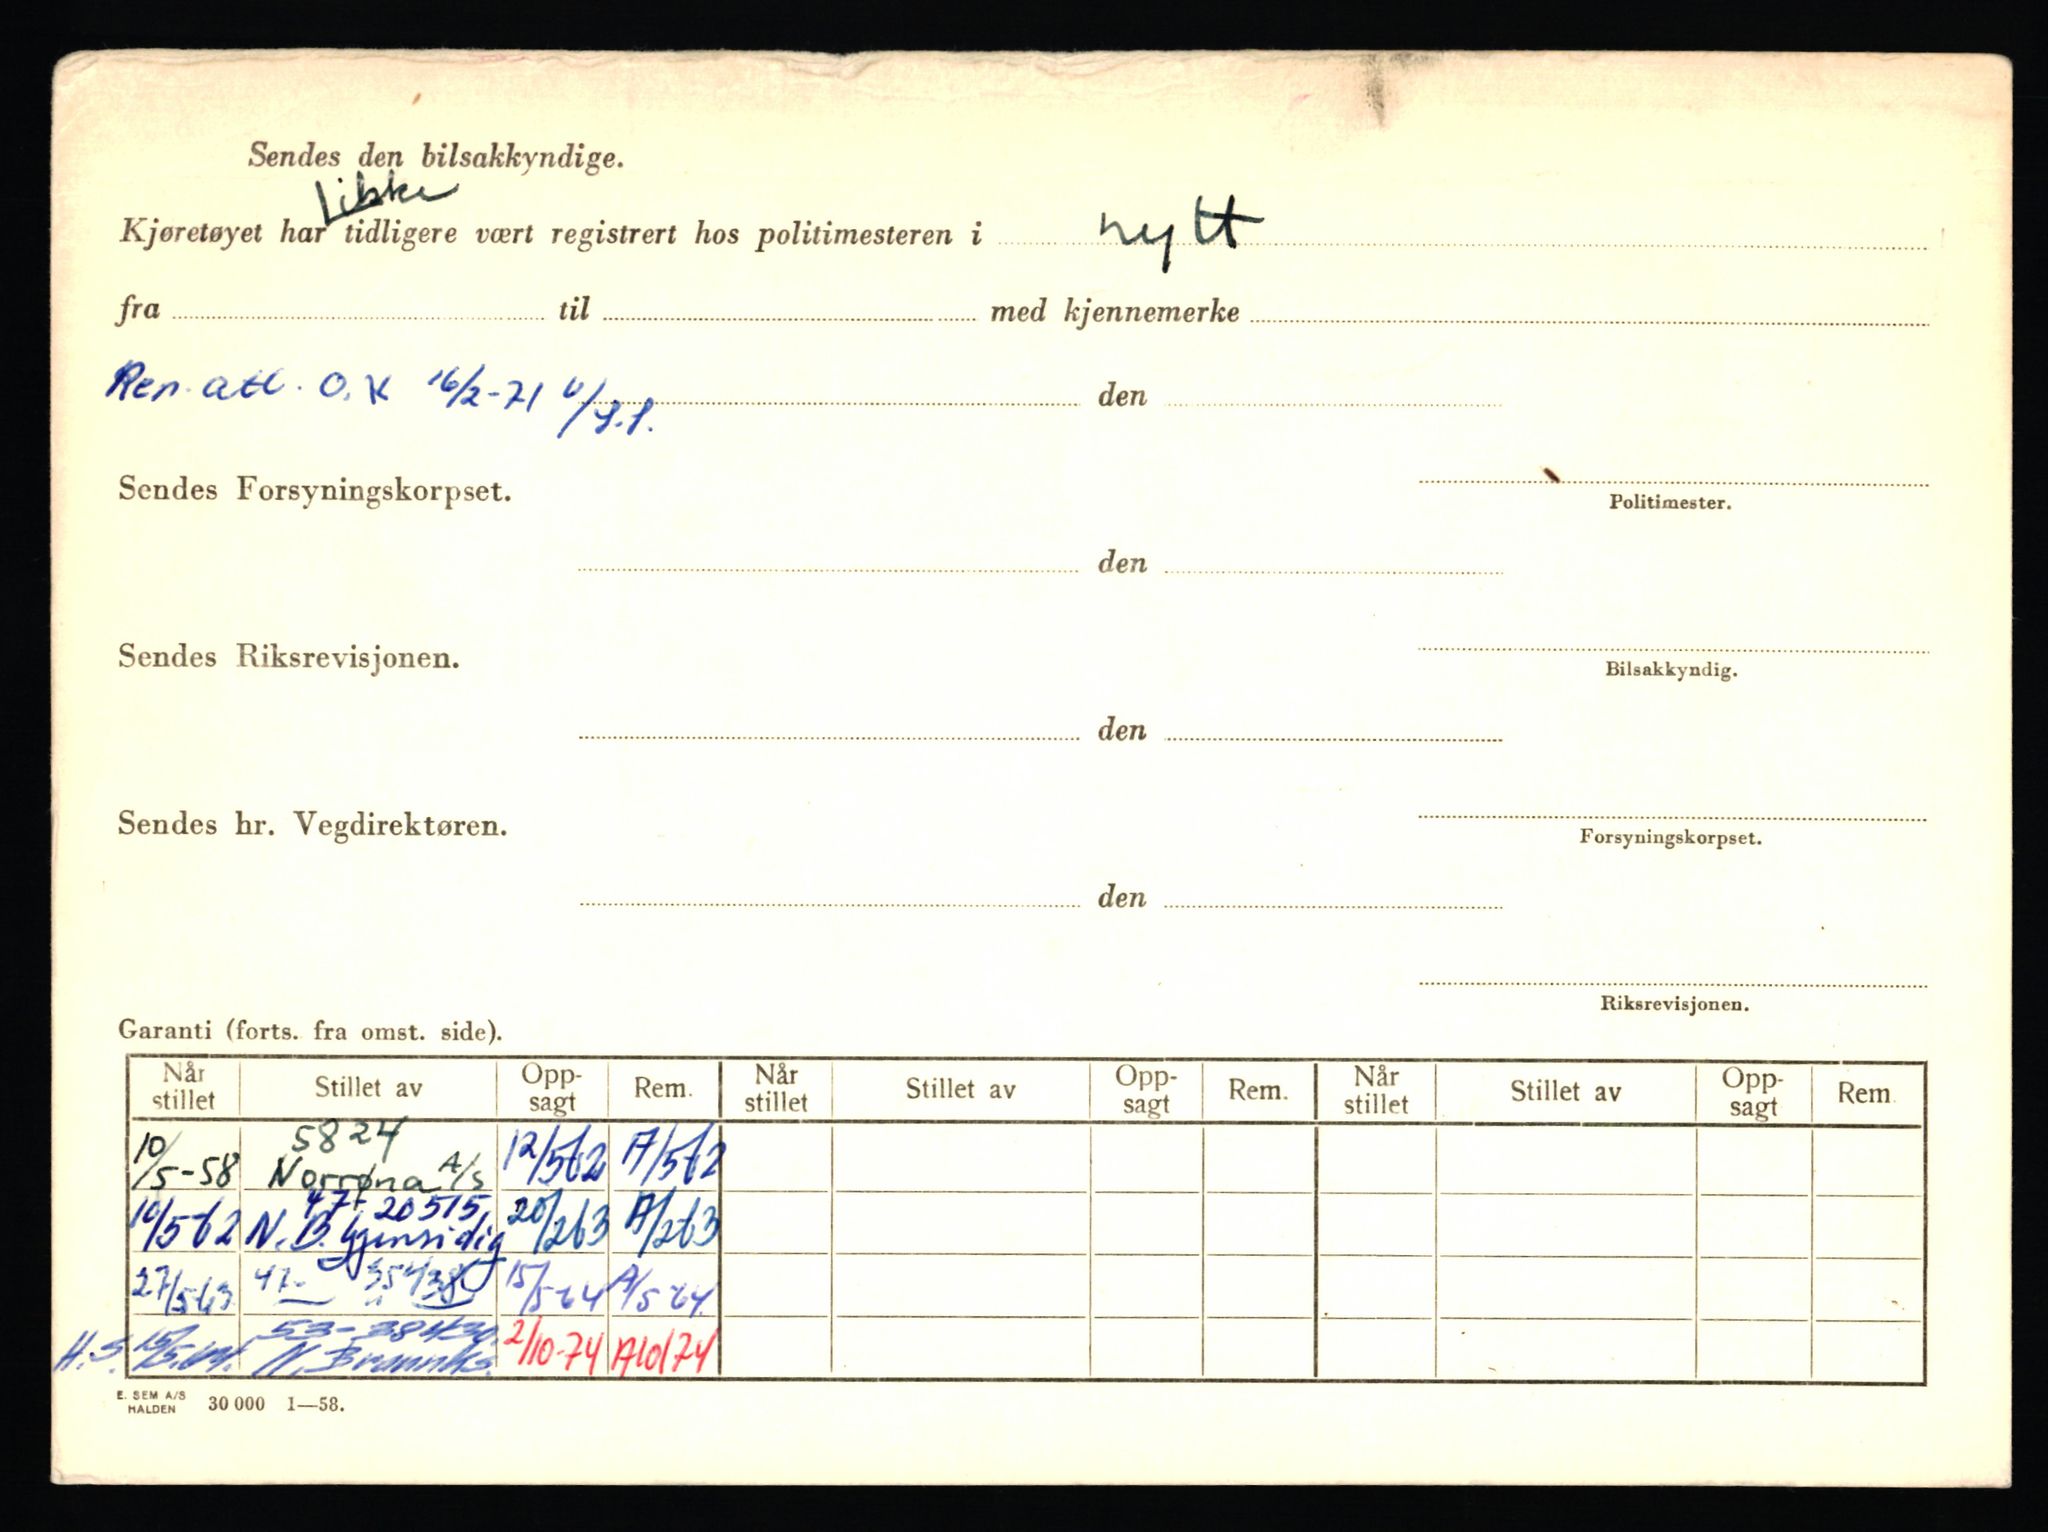 Sendes den bilsakkyndige.
ikke
Kjøretøyet har tidligere vært registrert hos politimesteren i nytt
fra til med kjennemerke
Ren. att. O.K 16/2-71 den
Sendes Forsyningskorpset.
Politimester.
den
Sendes Riksrevisjonen.
Bilsakkyndig.
den
Sendes hr. Vegdirektøren.
Forsyningskorpset.
den
Riksrevisjonen.
Garanti (forts. fra omst. side).
Når stillet Stillet av Opp-sagt Rem. Når stillet Stillet av Opp-sagt Rem. Når stillet Stillet av Opp-sagt Rem
5824
10/5-58 Norrøna A/S 12/5 62 A/5 62
47-20515
10/5-62 N.B. Gjensidig 20/2 63 A/2 63
27/5 63 47- 15/5-64 A/5 64
H.S. 15/5.64. N. Brannks. 2/10-74 A10/74
E. SEM A/S
HALDEN 30 000 1—58.